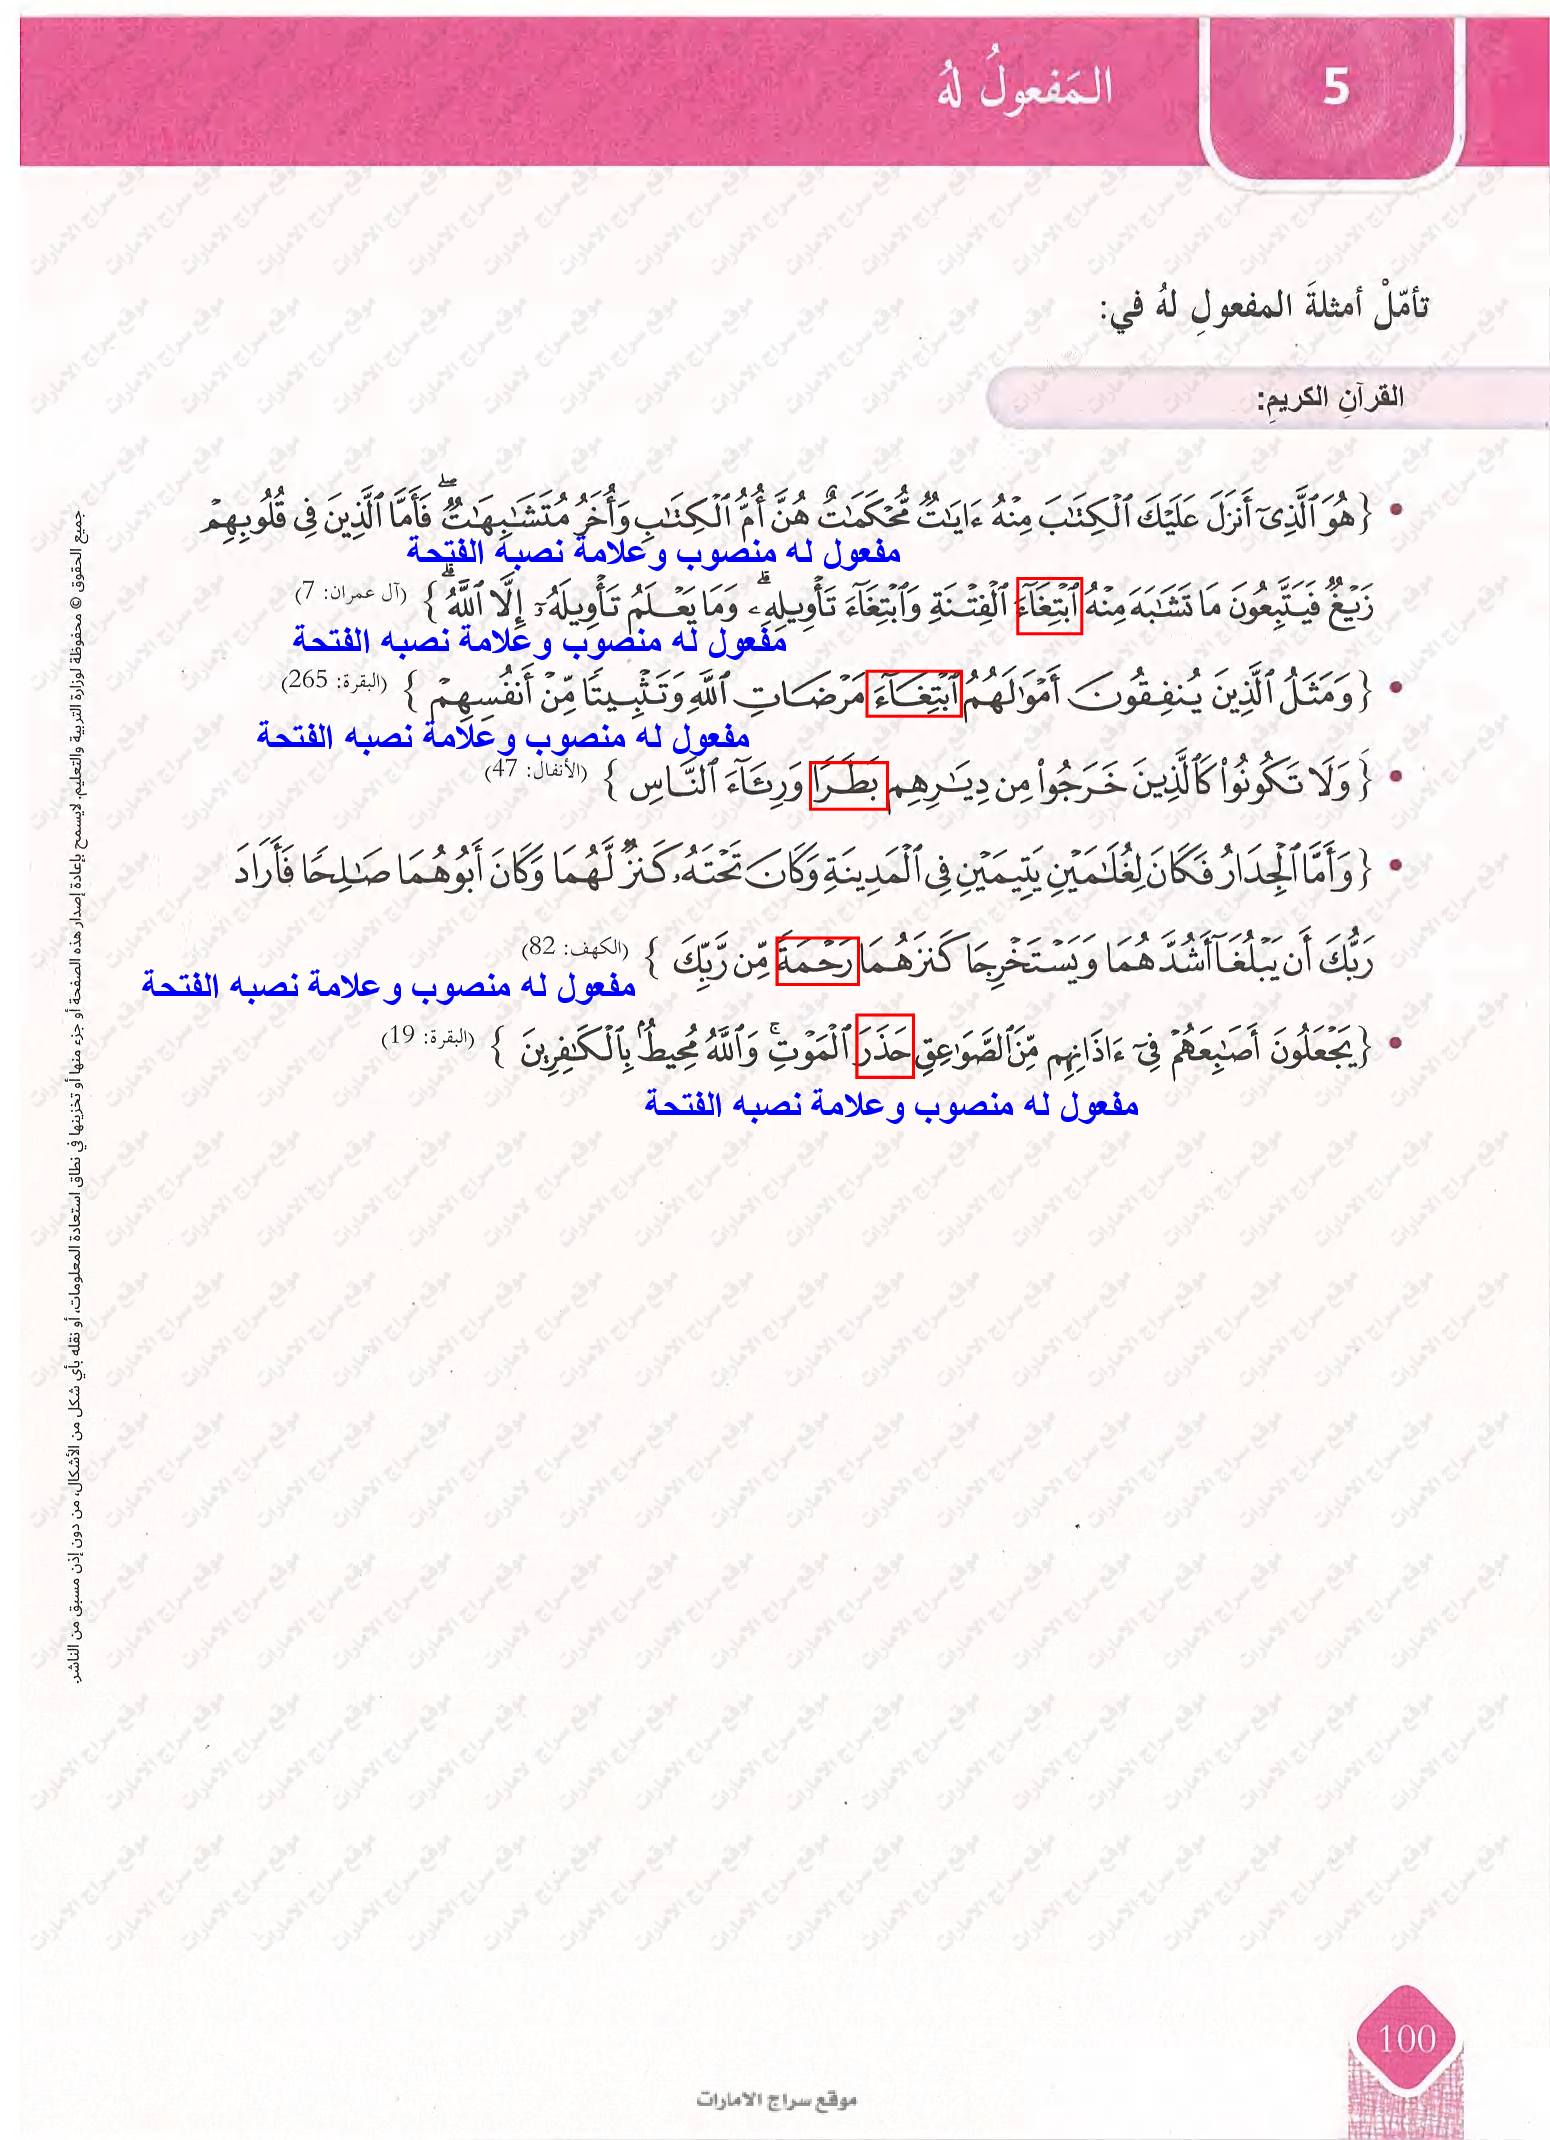 5
المَفعولُ لهُ
تأمّلْ أمثلةَ المفعولِ لهُ في:
القرآنِ الكريمِ:
• {هُوَ ٱلَّذِىٓ أَنزَلَ عَلَيۡكَ ٱلۡكِتَٰبَ مِنۡهُ ءَايَٰتٞ مُّحۡكَمَٰتٌ هُنَّ أُمُّ ٱلۡكِتَٰبِ وَأُخَرُ مُتَشَٰبِهَٰتٞۖ فَأَمَّا ٱلَّذِينَ فِى قُلُوبِهِمۡ
مفعول له منصوب وعلامة نصبه الفتحة
زَيۡغٞ فَيَتَّبِعُونَ مَا تَشَٰبَهَ مِنۡهُ ٱبۡتِغَآءَ ٱلۡفِتۡنَةِ وَٱبۡتِغَآءَ تَأۡوِيلِهِۦۗ وَمَا يَعۡلَمُ تَأۡوِيلَهُۥٓ إِلَّا ٱللَّهُۗ } (آل عمران: 7)
مفعول له منصوب وعلامة نصبه الفتحة
• {وَمَثَلُ ٱلَّذِينَ يُنفِقُونَ أَمۡوَٰلَهُمُ ٱبۡتِغَآءَ مَرۡضَاتِ ٱللَّهِ وَتَثۡبِيتٗا مِّنۡ أَنفُسِهِمۡ } (البقرة: 265)
مفعول له منصوب وعلامة نصبه الفتحة
• {وَلَا تَكُونُواْ كَٱلَّذِينَ خَرَجُواْ مِن دِيَٰرِهِم بَطَرٗا وَرِئَآءَ ٱلنَّاسِ } (الأنفال: 47)
• {وَأَمَّا ٱلۡجِدَارُ فَكَانَ لِغُلَٰمَيۡنِ يَتِيمَيۡنِ فِى ٱلۡمَدِينَةِ وَكَانَ تَحۡتَهُۥ كَنزٞ لَّهُمَا وَكَانَ أَبُوهُمَا صَٰلِحٗا فَأَرَادَ
رَبُّكَ أَن يَبۡلُغَآ أَشُدَّهُمَا وَيَسۡتَخۡرِجَا كَنزَهُمَا رَحۡمَةٗ مِّن رَّبِّكَ } (الكهف: 82)
مفعول له منصوب وعلامة نصبه الفتحة
• {يَجۡعَلُونَ أَصَٰبِعَهُمۡ فِىٓ ءَاذَانِهِم مِّنَ ٱلصَّوَٰعِقِ حَذَرَ ٱلۡمَوۡتِۚ وَٱللَّهُ مُحِيطُۢ بِٱلۡكَٰفِرِينَ } (البقرة: 19)
مفعول له منصوب وعلامة نصبه الفتحة
جميع الحقوق © محفوظة لوزارة التربية والتعليم. لايسمح بإعادة إصدار هذه الصفحة أو جزء منها أو تخزينها في نطاق استعادة المعلومات، أو نقله بأي شكل من الأشكال، من دون إذن مسبق من الناشر.
100
موقع سراج الامارات